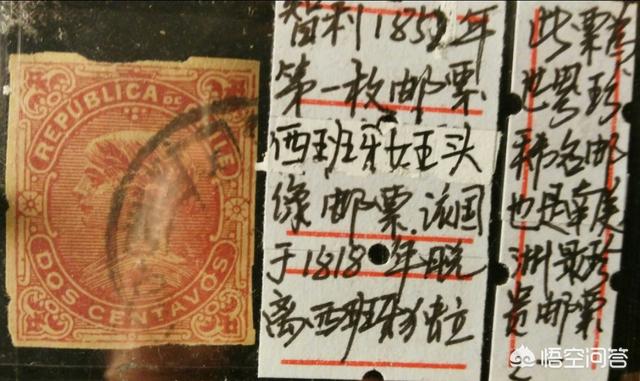 REPUBLICA DE CHILE
DOS CENTAVOS
智利1852年
第一枚邮票
西班牙女王头
像邮票.该国
于1818年脱
离西班牙独立
此票为
世界珍
稀名邮
也是南美
洲最珍
贵邮票
悟空问答